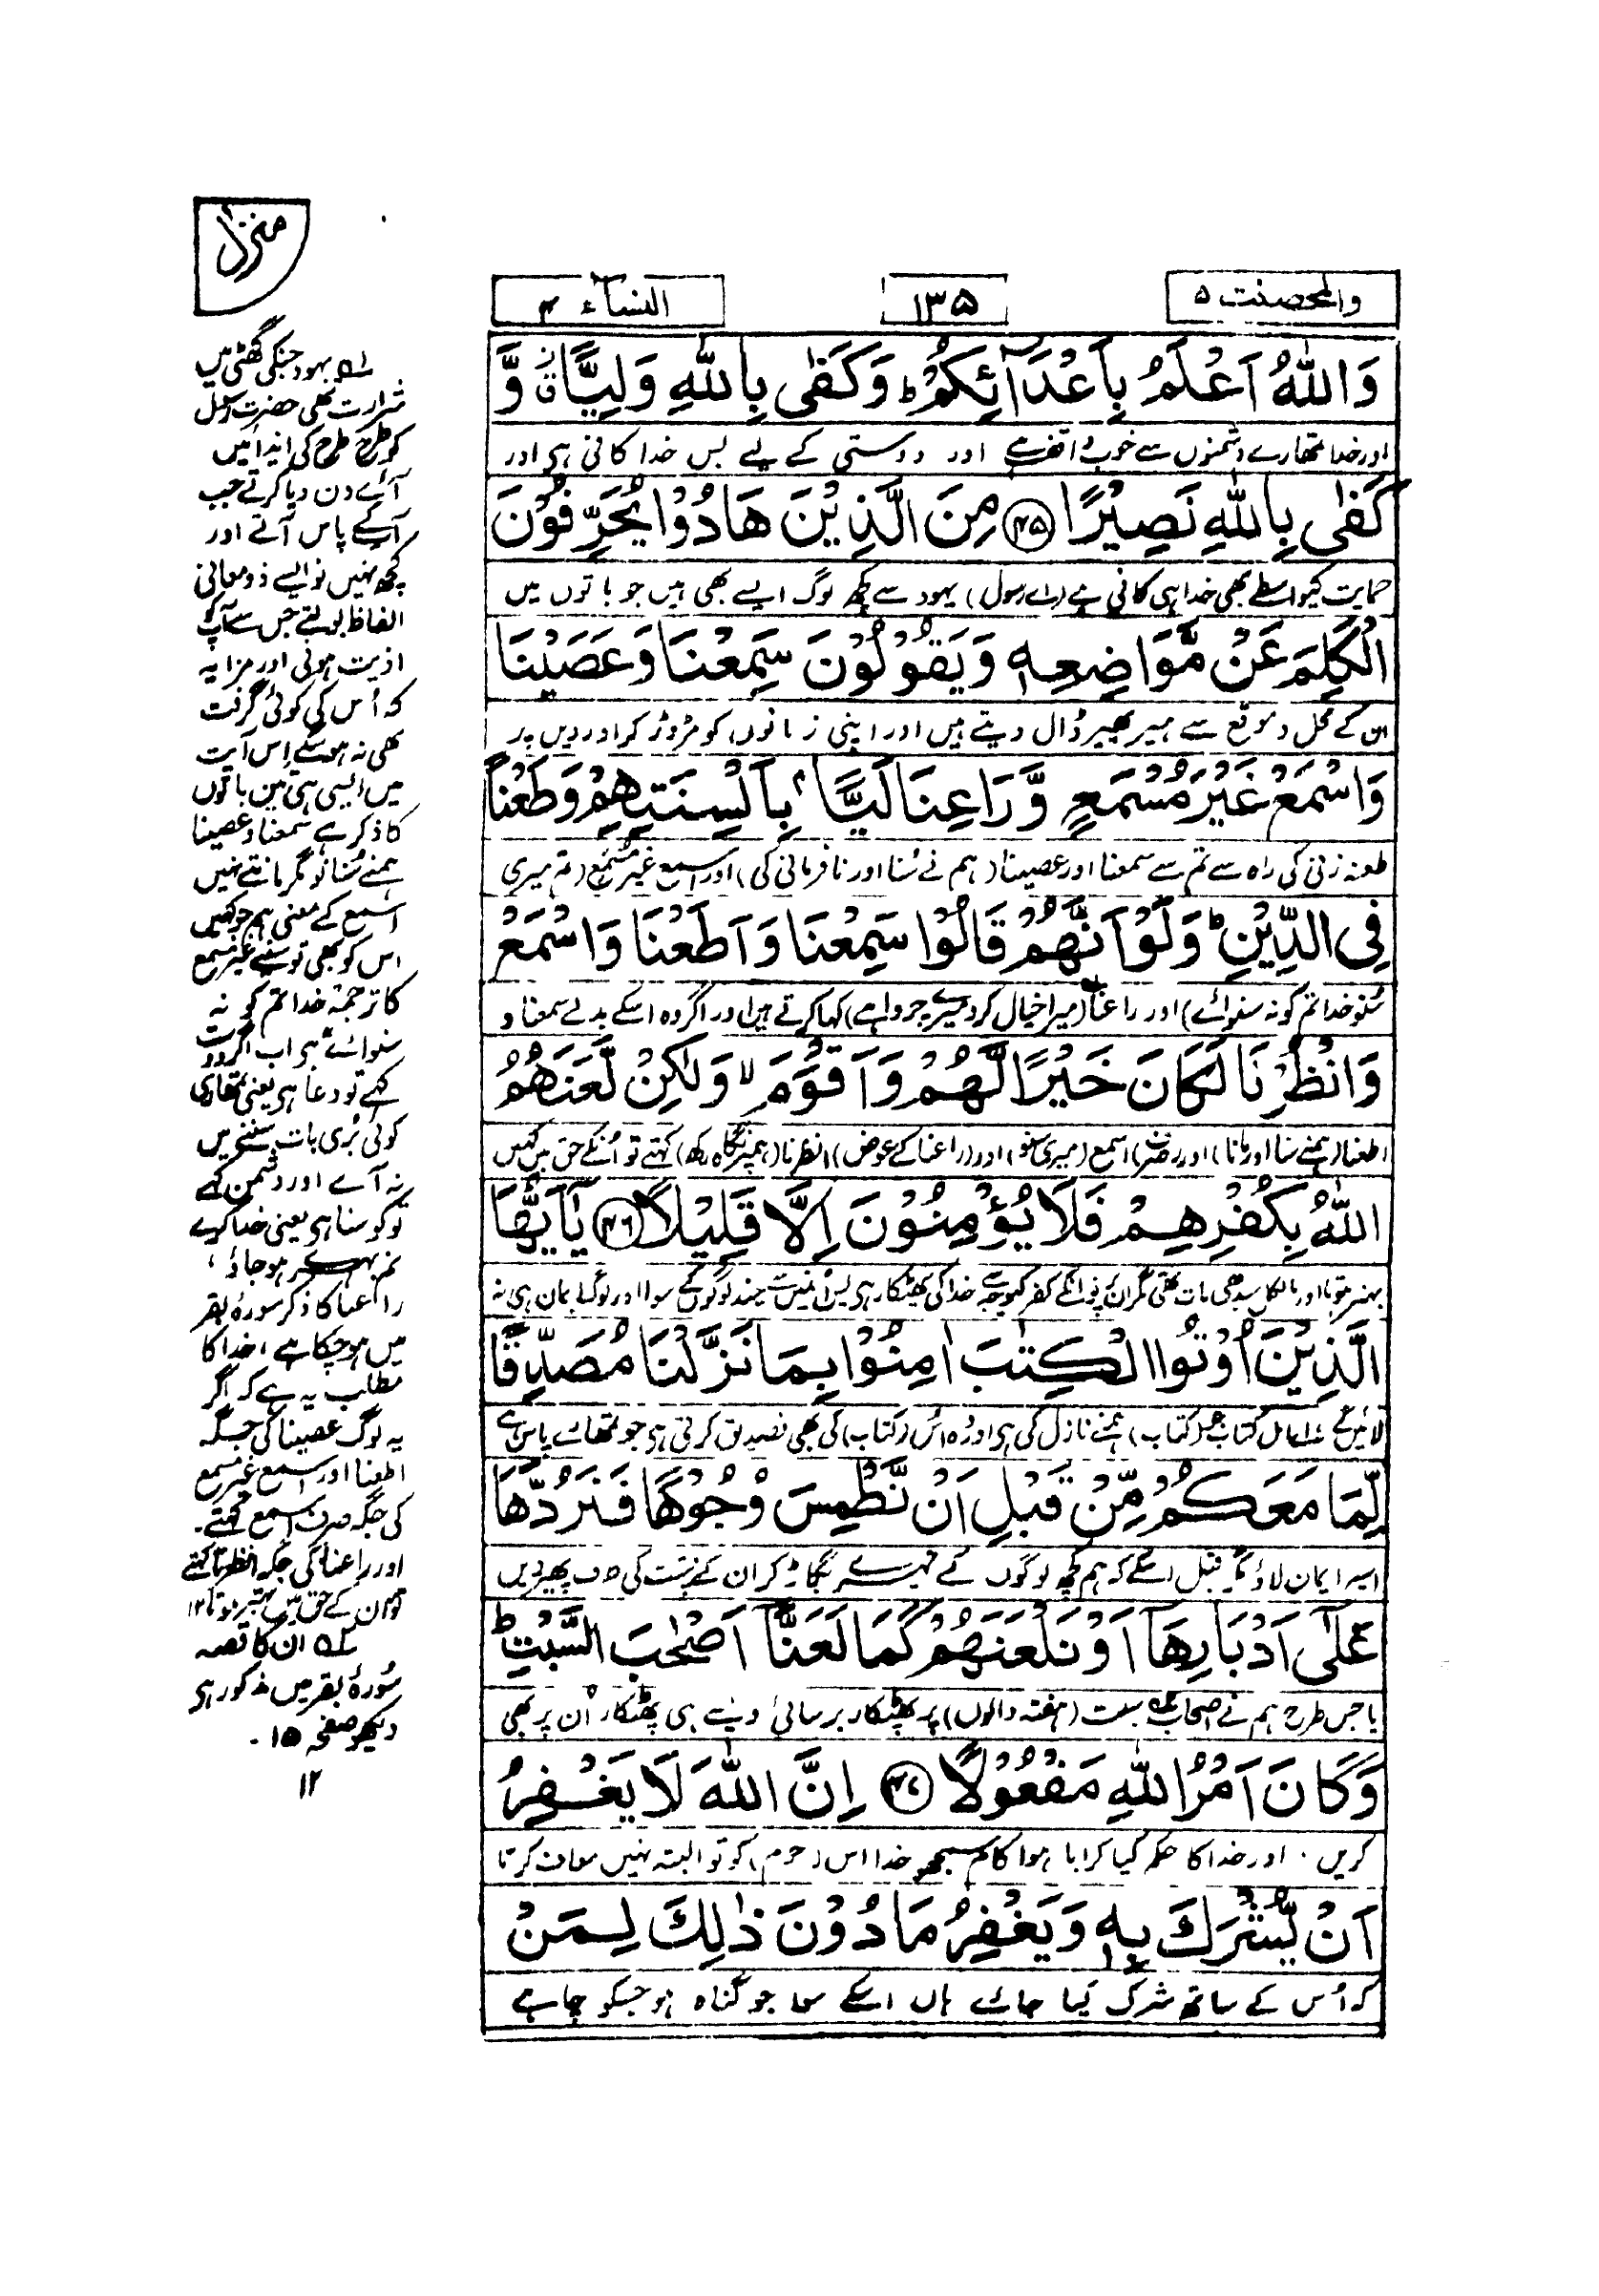 منزل
والمحصنت ۵
۱۳۵
النسآء ۴
وَاللّٰهُ اَعْلَمُ بِاَعْدَآئِكُمْ ؕ وَكَفٰى بِاللّٰهِ وَلِيًّا ۫ۙ وَّ
اور خدا تمھارے دشمنوں سے خوب واقف ہے اور دوستی کے لیے بس خدا کافی ہی اور
كَفٰى بِاللّٰهِ نَصِيْرًا ۴۵ مِنَ الَّذِيْنَ هَادُوْا يُحَرِّفُوْنَ
حمایت کیواسطے بھی خدا ہی کافی ہے (اے رسول) یہود سے کچھ لوگ ایسے بھی ہیں جو باتوں میں
الْكَلِمَ عَنْ مَّوَاضِعِهٖ وَيَقُوْلُوْنَ سَمِعْنَا وَعَصَيْنَا
ان کے محل و موقع سے ہیر پھیر ڈال دیتے ہیں اور اپنی زبانوں کو مڑوڑ کر اور دین پر
وَاسْمَعْ غَيْرَ مُسْمَعٍ وَّرَاعِنَا لَيًّا ۢ بِاَلْسِنَتِهِمْ وَطَعْنًا
طعنہ زنی کی راہ سے تم سے سمعنا اور عصینا (ہم نے سُنا اور نافرمانی کی) اور اسمع غیر مسمع (تم میری
فِى الدِّيْنِ ؕ وَلَوْ اَنَّهُمْ قَالُوْا سَمِعْنَا وَاَطَعْنَا وَاسْمَعْ
سُنو خدا تم کو نہ سنوائے) اور راعنا (میرا خیال کرو میرے چرواہے) کہا کرتے ہیں اور اگر وہ اسکے بدلے سمعنا و
وَانْظُرْنَا لَكَانَ خَيْرًا لَّهُمْ وَاَقْوَمَ ۙ وَلٰكِنْ لَّعَنَهُمُ
اطعنا (ہمنے سنا اور مانا) اور (صرف) اسمع (میری سنو) اور (راعنا کے عوض) انظرنا (ہمپر نگاہ رکھ) کہتے تو اُنکے حق میں کہیں
اللّٰهُ بِكُفْرِهِمْ فَلَا يُؤْمِنُوْنَ اِلَّا قَلِيْلًا ۴۶ يٰٓاَيُّهَا
بہتر ہوتا اور بالکل سیدھی بات تھی مگر ان پر تو انکے کفر کیوجہ سے خدا کی پھٹکار ہی پس انمیں سے چند لوگوں کے سوا اور لوگ ایمان ہی نہ
الَّذِيْنَ اُوْتُوا الْكِتٰبَ اٰمِنُوْا بِمَا نَزَّلْنَا مُصَدِّقًا
لائیں گے اے اہل کتاب جو (کتاب) ہمنے نازل کی ہی اور وہ اُس (کتاب) کی بھی تصدیق کرتی ہی جو تمھارے پاس ہے
لِّمَا مَعَكُمْ مِّنْ قَبْلِ اَنْ نَّطْمِسَ وُجُوْهًا فَنَرُدَّهَا
اسپر ایمان لاؤ مگر قبل اسکے کہ ہم کچھ لوگوں کے چہرے بگاڑ کر ان کے پشت کی طرف پھیر دیں
عَلٰٓى اَدْبَارِهَآ اَوْ نَلْعَنَهُمْ كَمَا لَعَنَّآ اَصْحٰبَ السَّبْتِ ؕ
یا جس طرح ہم نے اصحاب سبت (ہفتہ والوں) پر پھٹکار برسائی ویسے ہی پھٹکار اُن پر بھی
وَكَانَ اَمْرُ اللّٰهِ مَفْعُوْلًا ۴۷ اِنَّ اللّٰهَ لَا يَغْفِرُ
کریں ۔ اور خدا کا حکم کیا کرایا ہوا کام سمجھو خدا اس (جرم) کو تو البتہ نہیں معاف کرتا
اَنْ يُّشْرَكَ بِهٖ وَيَغْفِرُ مَا دُوْنَ ذٰلِكَ لِمَنْ
کہ اُس کے ساتھ شرک کیا جائے ہاں اسکے سوا جو گناہ ہو جسکو چاہے
لہ یہود جنکی گھٹی میں
شرارت تھی حضرت رسول
کو طرح طرح کی ایذائیں
آئے دن دیا کرتے جب
آپکے پاس آتے اور
کچھ نہیں تو ایسے ذو معانی
الفاظ بولتے جس سے آپ کو
اذیت ہوتی اور مزا یہ
کہ اُس کی کوئی گرفت
بھی نہ ہو سکے اس آیت
میں ایسی ہی تین باتوں
کا ذکر ہے سمعنا و عصینا
ہمنے سُنا تو مگر مانتے نہیں
اسمع کے معنی ہم جو کہیں
اس کو بھی تو سنیے غیر مسمع
کا ترجمہ خدا تم کو نہ
سنوائے ہی اب اگر دوست
کہے تو دعا ہی یعنی تمھاری
کوئی بُری بات سننے میں
نہ آے اور دشمن کہے
تو کوسنا ہی یعنی خدا کرے
تم بہرے ہو جاؤ،
راعنا کا ذکر سورۂ بقر
میں ہو چکا ہے، خدا کا
مطلب یہ ہے کہ اگر
یہ لوگ عصینا کی جگہ
اطعنا اور اسمع غیر مسمع
کی جگہ صرف اسمع کہتے۔
اور راعنا کی جگہ انظرنا کہتے
تو ان کے حق میں بہتر ہوتا ۱۲
لہ ان کا قصہ
سُورۂ بقر میں مذکور ہی
دیکھو صفحہ ۱۵۔
۱۲